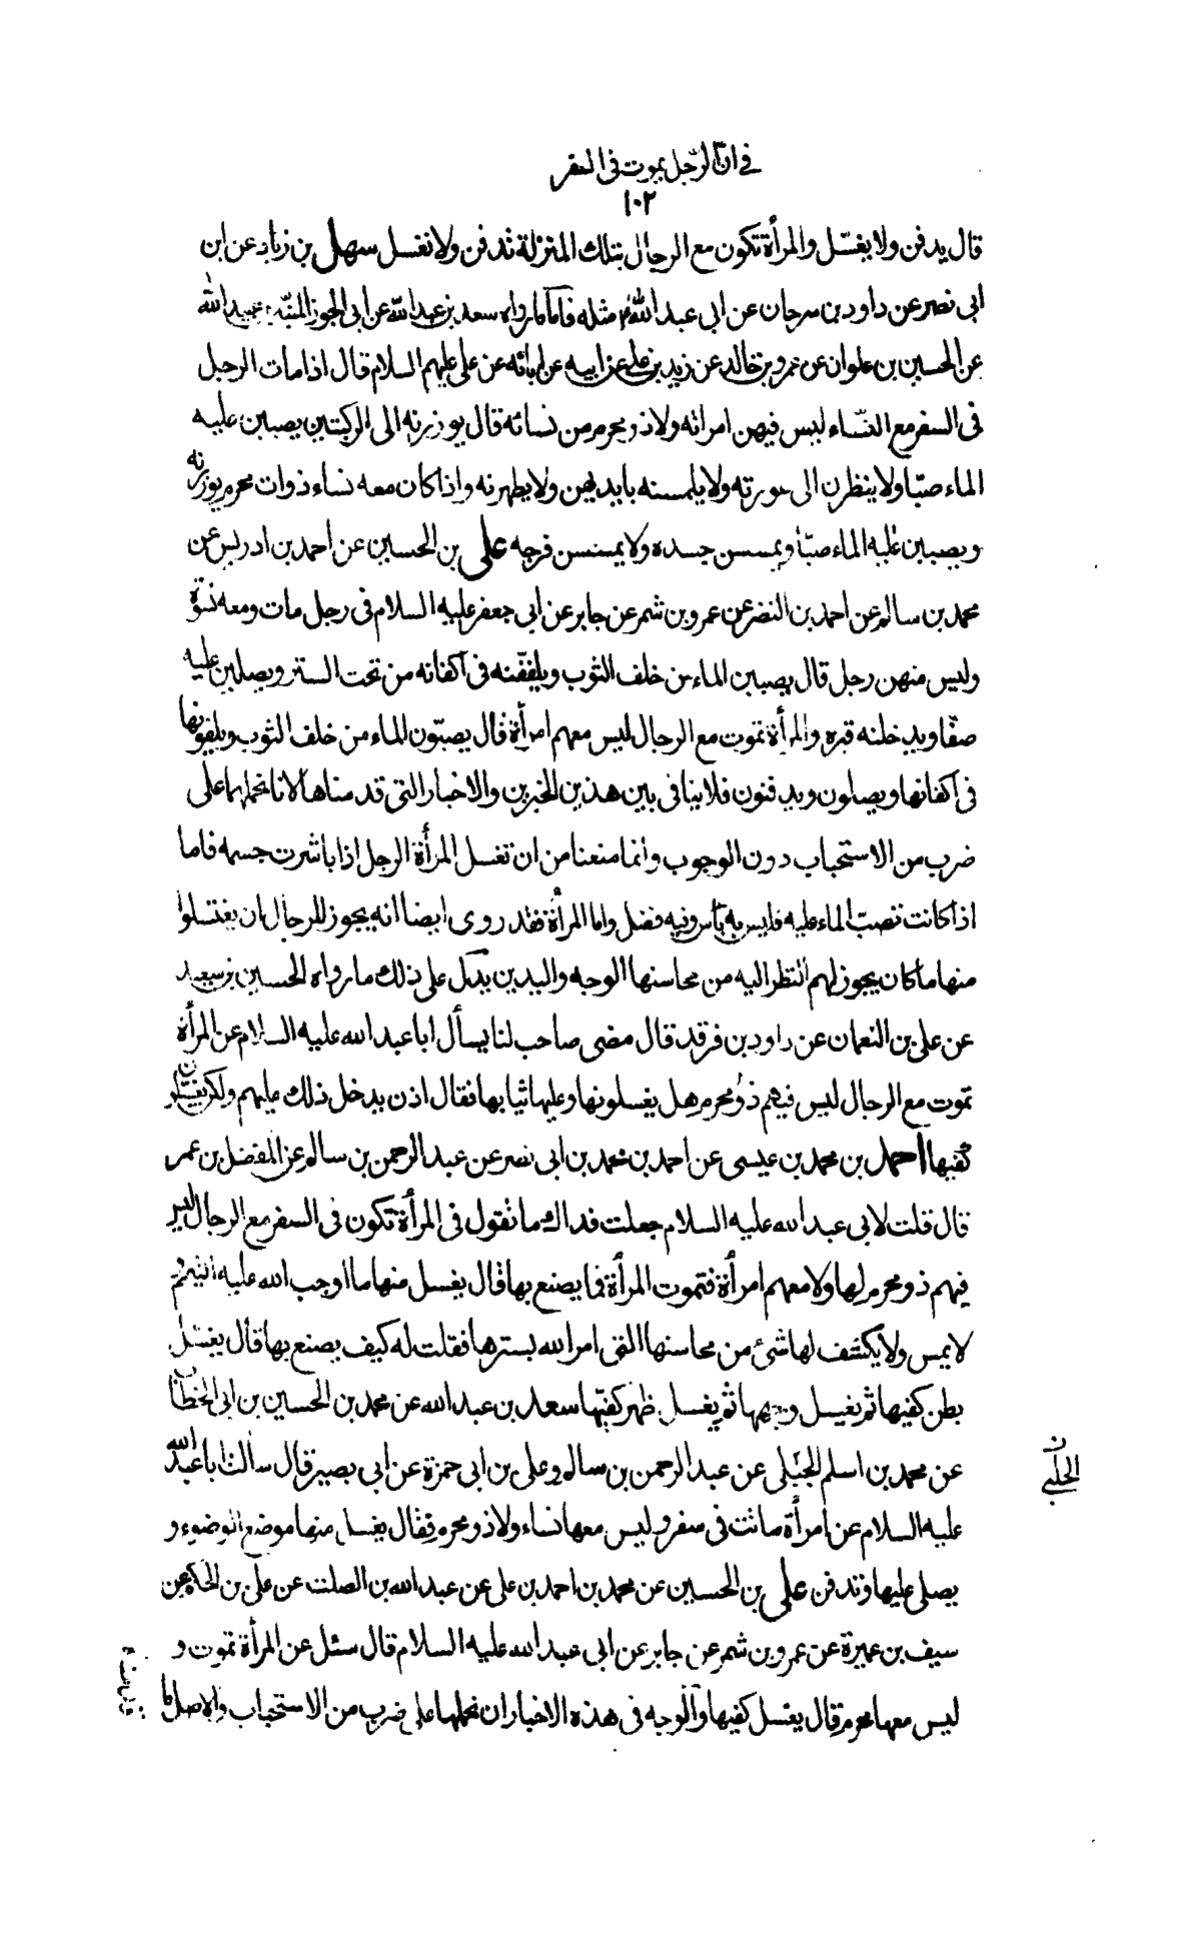 في ان الرجل يموت في السفر
١٠٢
قال يدفن ولا يغسّل والمرأة تكون مع الرجال بتلك المنزلة تدفن ولا تغسل سهل بن زياد عن ابن
ابى نصر عن داود بن سرحان عن ابى عبد الله مثله فاما ما رواه سعد بن عبد الله عن ابى الجوزا المنبّه بن عبيد الله
عن الحسين بن علوان عن عمرو بن خالد عن زيد بن على عن ابيه عن ابائه عن على عليهم السلام قال اذا مات الرجل
فى السفر مع النّساء ليس فيهن امراته ولا ذو محرم من نسائه قال يوزرنه الى الركبتين يصببن عليه
الماء صبّا ولا ينظرن الى عورته ولا يلمسنه بايديهن ولا يطهرنه واذا كان معه نساء ذوات محرم يوزرنه
ويصببن عليه الماء صبّا ويمسسن جسده ولا يمسسن فرجه على بن الحسين عن احمد بن ادريس عن
محمد بن سالم عن احمد بن النضر عن عمرو بن شمر عن جابر عن ابى جعفر عليه السلام فى رجل مات ومعه نسوة
وليس منهن رجل قال يصببن الماء من خلف الثوب ويلففنه فى اكفانه من تحت الستر ويصلين عليه
صفّا ويدخلنه قبره والمرأة تموت مع الرجال ليس معهم امرأة قال يصبّون الماء من خلف الثوب ويلفونها
فى اكفانها ويصلون ويدفنون فلا ينافى بين هذين الخبرين والاخبار التى قدمناها لانا نحملها على
ضرب من الاستحباب دون الوجوب وانما منعنا من ان تغسل المرأة الرجل إذا باشرت جسمه فاما
اذا كانت تصبّ الماء عليه فليس به بأس وفيه فضل واما المرأة فقد روى ايضا انه يجوز للرجال ان يغتسلوا
منها ما كان يجوز لهم النظر اليه من محاسنها الوجه واليدين يدل على ذلك ما رواه الحسين بن سعيد
عن على بن النعمان عن داود بن فرقد قال مضى صاحب لنا يسأل ابا عبد الله عليه السلام عن المرأة
تموت مع الرجال ليس فيهم ذو محرم هل يغسلونها وعليها ثيابها فقال اذن يدخل ذلك عليهم ولكن يغسلون
كفيها احمد بن محمد بن عيسى عن احمد بن محمد بن ابى نصر عن عبد الرحمن بن سالم عن المفضل بن عمر
قال قلت لابى عبد الله عليه السلام جعلت فداك ما تقول فى المرأة تكون فى السفر مع الرجال ليس
فيهم ذو محرم لها ولا معهم امرأة فتموت المرأة فما يصنع بها قال يغسل منها ما اوجب الله عليه التيمم
لا يمس ولا يكشف لها شئ من محاسنها التى امر الله بسترها فقلت له كيف يصنع بها قال يغسل
بطن كفيها ثم يغسل وجهها ثم يغسل ظهر كفيّها سعد بن عبد الله عن محمد بن الحسين بن ابى الخطاب
عن محمد بن اسلم الجبلى عن عبد الرحمن بن سالم وعلى بن ابى حمزة عن ابى بصير قال سألت ابا عبد الله
الحلبى ن
عليه السلام عن امرأة ماتت فى سفر وليس معها نساء ولا ذو محرم فقال يغسل منها موضع الوضوء و
يصلى عليها وتدفن على بن الحسين عن محمد بن احمد بن على عن عبد الله بن الصلت عن على بن الحكم عن
سيف بن عميرة عن عمرو بن شمر عن جابر عن ابى عبد الله عليه السلام قال سئل عن المرأة تموت و
ليس معها محرم قال يغسل كفيها والوجه فى هذه الاخبار ان نحملها على ضرب من الاستحباب والاصل ما